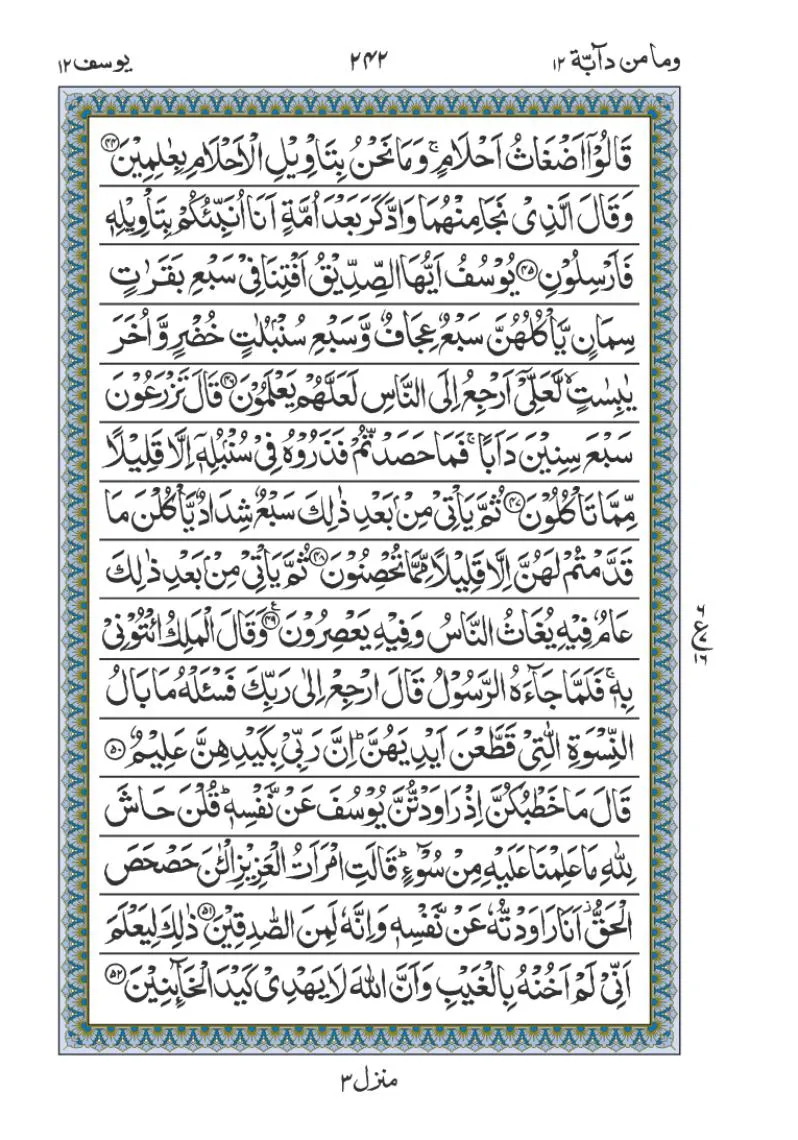 وما من دآبّة ١٢
٢٤٢
يوسف ١٢
قَالُوْۤا اَضْغَاثُ اَحْلَامٍ ۚ وَمَا نَحْنُ بِتَاْوِيْلِ الْاَحْلَامِ بِعٰلِمِيْنَ ﴿۴۴﴾
وَقَالَ الَّذِيْ نَجَا مِنْهُمَا وَادَّكَرَ بَعْدَ اُمَّةٍ اَنَا اُنَبِّئُكُمْ بِتَاْوِيْلِهٖ
فَاَرْسِلُوْنِ ﴿۴۵﴾ يُوْسُفُ اَيُّهَا الصِّدِّيْقُ اَفْتِنَا فِيْ سَبْعِ بَقَرٰتٍ
سِمَانٍ يَّاْكُلُهُنَّ سَبْعٌ عِجَافٌ وَّسَبْعِ سُنْۢبُلٰتٍ خُضْرٍ وَّاُخَرَ
يٰبِسٰتٍ ۙ لَّعَلِّيْۤ اَرْجِعُ اِلَى النَّاسِ لَعَلَّهُمْ يَعْلَمُوْنَ ﴿۴۶﴾ قَالَ تَزْرَعُوْنَ
سَبْعَ سِنِيْنَ دَاَبًا ۚ فَمَا حَصَدْتُّمْ فَذَرُوْهُ فِيْ سُنْۢبُلِهٖۤ اِلَّا قَلِيْلًا
مِّمَّا تَاْكُلُوْنَ ﴿۴۷﴾ ثُمَّ يَاْتِيْ مِنْۢ بَعْدِ ذٰلِكَ سَبْعٌ شِدَادٌ يَّاْكُلْنَ مَا
قَدَّمْتُمْ لَهُنَّ اِلَّا قَلِيْلًا مِّمَّا تُحْصِنُوْنَ ﴿۴۸﴾ ثُمَّ يَاْتِيْ مِنْۢ بَعْدِ ذٰلِكَ
عَامٌ فِيْهِ يُغَاثُ النَّاسُ وَفِيْهِ يَعْصِرُوْنَ ﴿۴۹﴾ وَقَالَ الْمَلِكُ ائْتُوْنِيْ
بِهٖ ۚ فَلَمَّا جَآءَهُ الرَّسُوْلُ قَالَ ارْجِعْ اِلٰى رَبِّكَ فَسْـَٔلْهُ مَا بَالُ
النِّسْوَةِ الّٰتِيْ قَطَّعْنَ اَيْدِيَهُنَّ ؕ اِنَّ رَبِّيْ بِكَيْدِهِنَّ عَلِيْمٌ ﴿۵۰﴾
قَالَ مَا خَطْبُكُنَّ اِذْ رَاوَدْتُّنَّ يُوْسُفَ عَنْ نَّفْسِهٖ ؕ قُلْنَ حَاشَ
لِلّٰهِ مَا عَلِمْنَا عَلَيْهِ مِنْ سُوْٓءٍ ؕ قَالَتِ امْرَاَتُ الْعَزِيْزِ الْـٰٔنَ حَصْحَصَ
الْحَقُّ ؗ اَنَا رَاوَدْتُّهٗ عَنْ نَّفْسِهٖ وَاِنَّهٗ لَمِنَ الصّٰدِقِيْنَ ﴿۵۱﴾ ذٰلِكَ لِيَعْلَمَ
اَنِّيْ لَمْ اَخُنْهُ بِالْغَيْبِ وَاَنَّ اللّٰهَ لَا يَهْدِيْ كَيْدَ الْخَآئِنِيْنَ ﴿۵۲﴾
منزل ٣